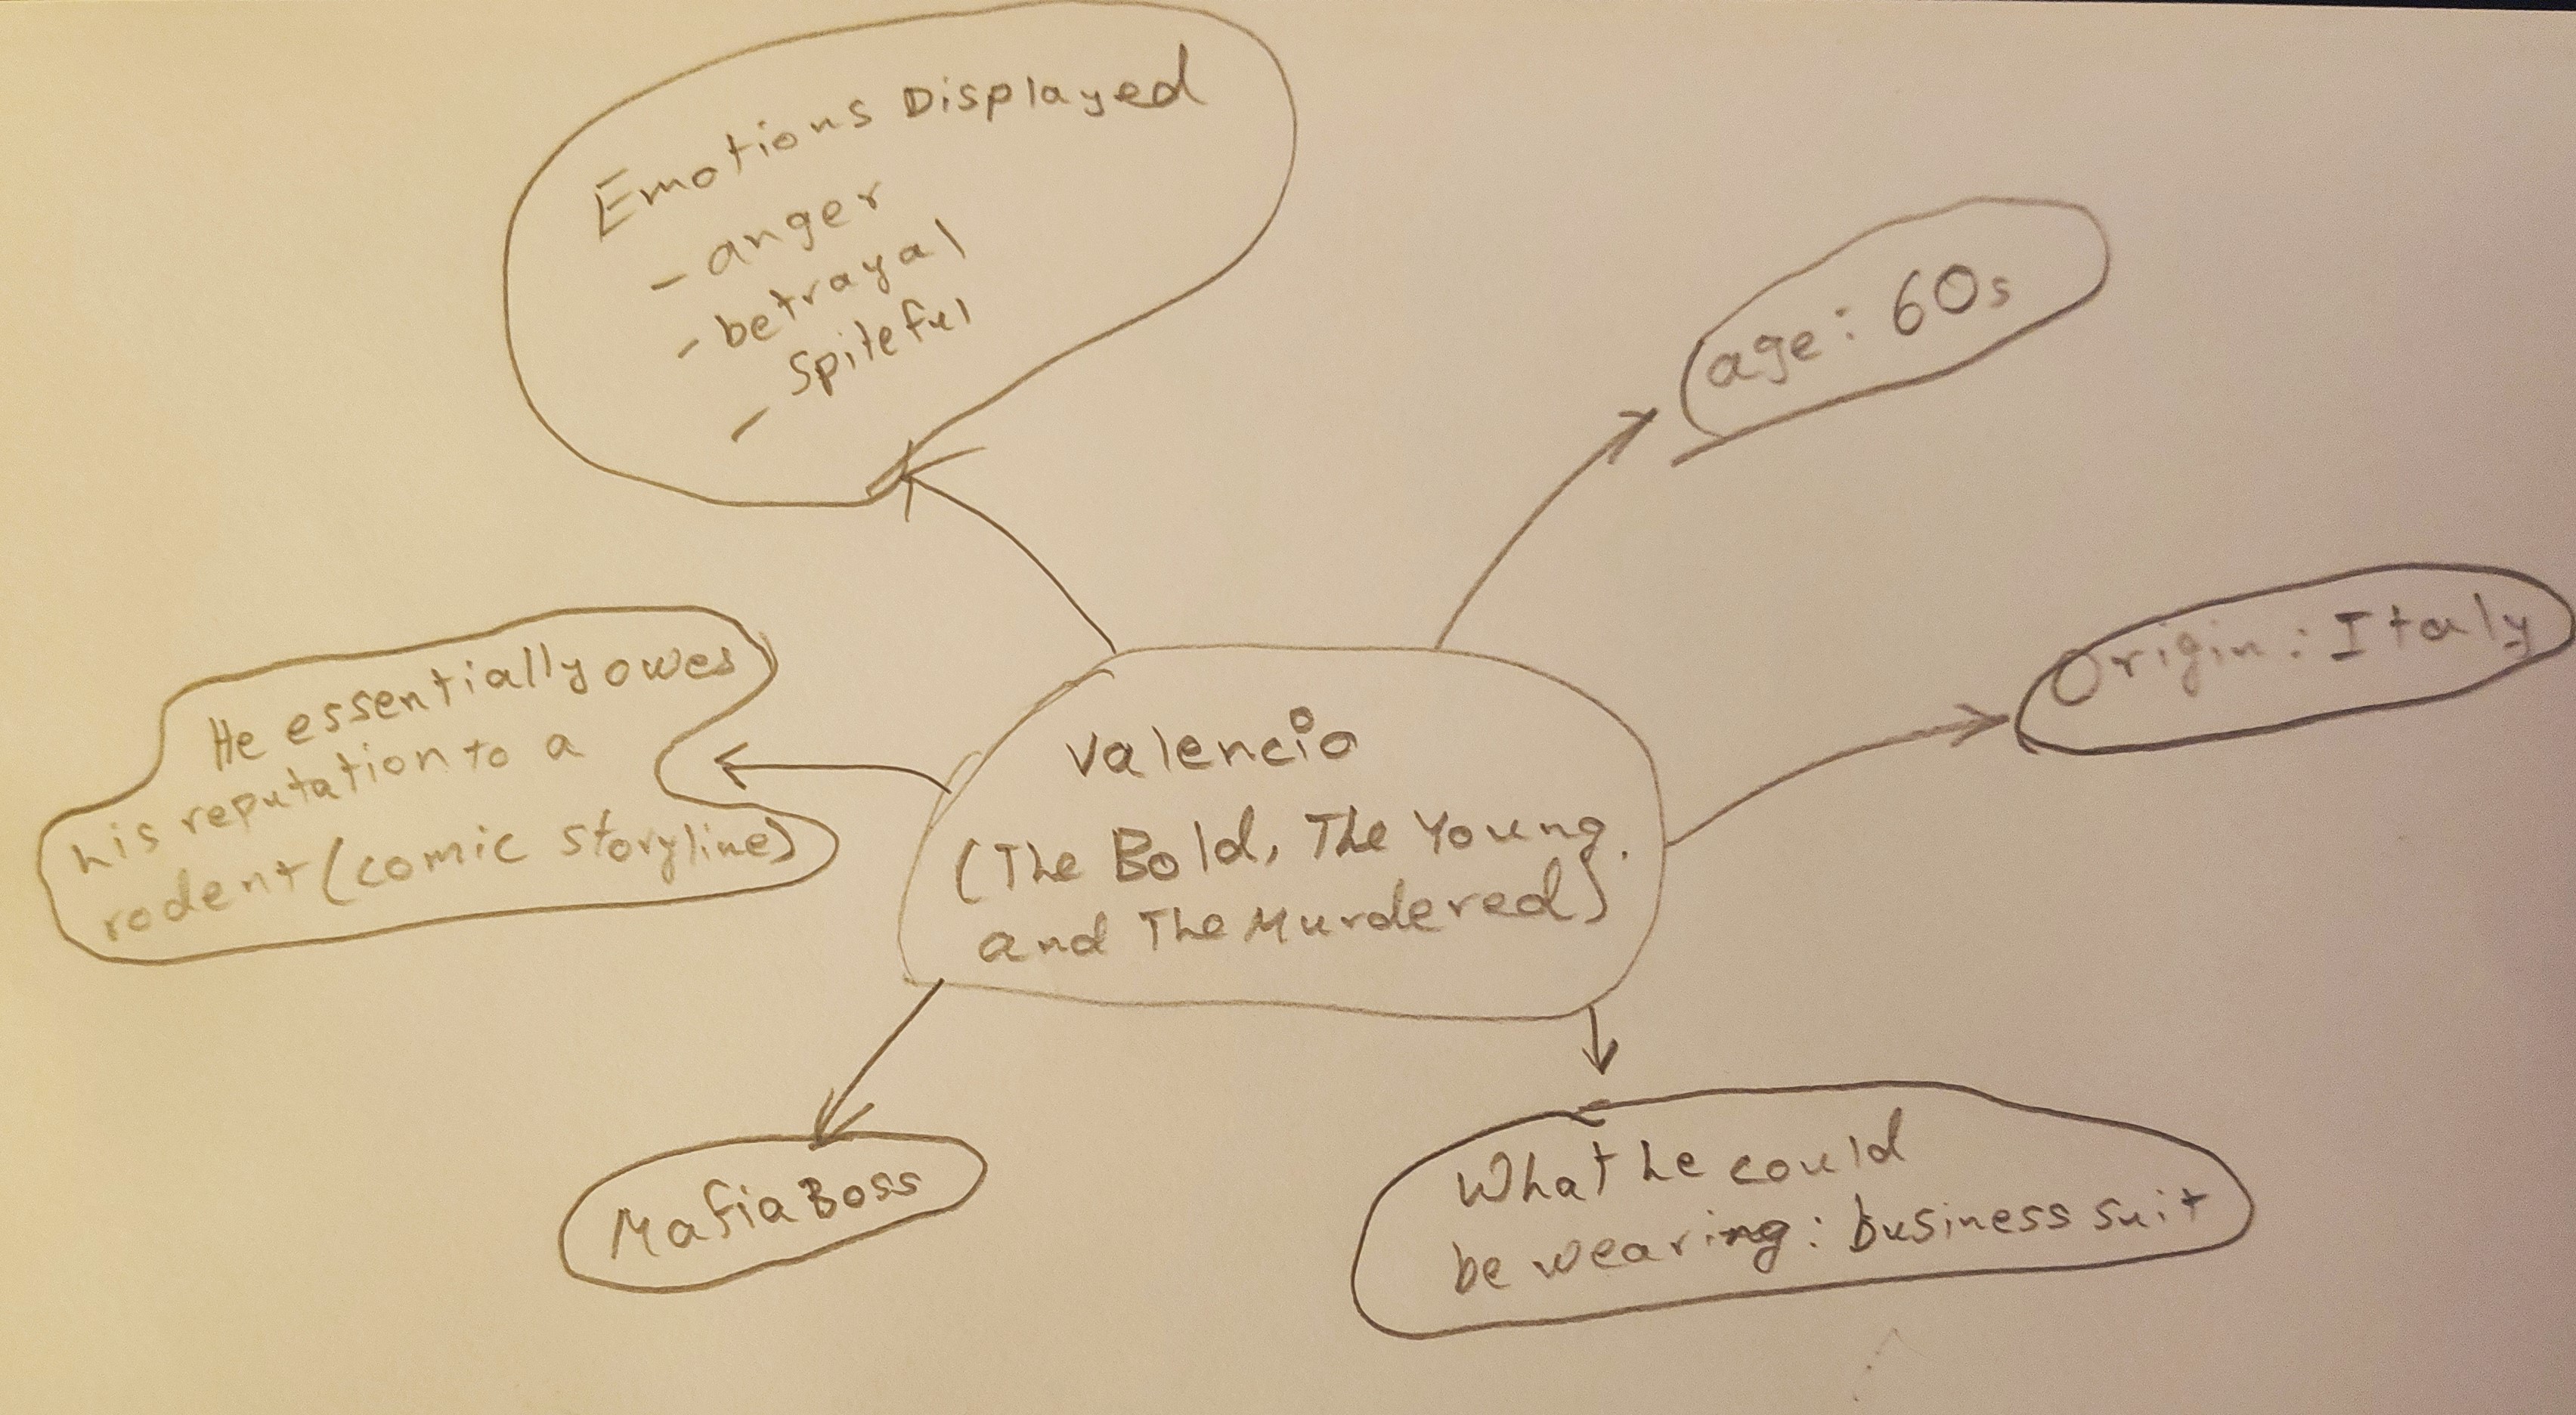 Emotions Displayed
- anger
- betrayal
- spiteful
age: 60s
Origin: Italy
He essentially owes
his reputation to a
rodent (comic storyline)
Valencio
(The Bold, The Young.
and The Murdered)
Mafia Boss
What he could
be wearing: business suit